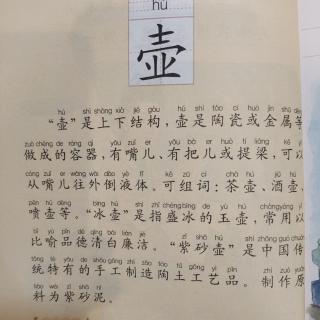 hú
壶
hú shì shàng xià jié gòu hú shì táo cí huò jīn shǔ
“壶”是上下结构，壶是陶瓷或金属等
zuò chéng de róng qì yǒu zuǐ er yǒu bà er huò tí liáng kě yǐ
做成的容器，有嘴儿、有把儿或提梁，可以
cóng zuǐ er wǎng wài dào yè tǐ kě zǔ cí chá hú jiǔ hú
从嘴儿往外倒液体。可组词：茶壶、酒壶、
pēn hú děng bīng hú shì zhǐ chéng bīng de yù hú cháng yòng yǐ
喷壶等。“冰壶”是指盛冰的玉壶，常用以
bǐ yù pǐn dé qīng bái lián jié zǐ shā hú shì zhōng guó chuán
比喻品德清白廉洁。“紫砂壶”是中国传
tǒng tè yǒu de shǒu gōng zhì zào táo tǔ gōng yì pǐn zhì zuò yuán
统特有的手工制造陶土工艺品。制作原
liào wéi zǐ shā ní
料为紫砂泥。